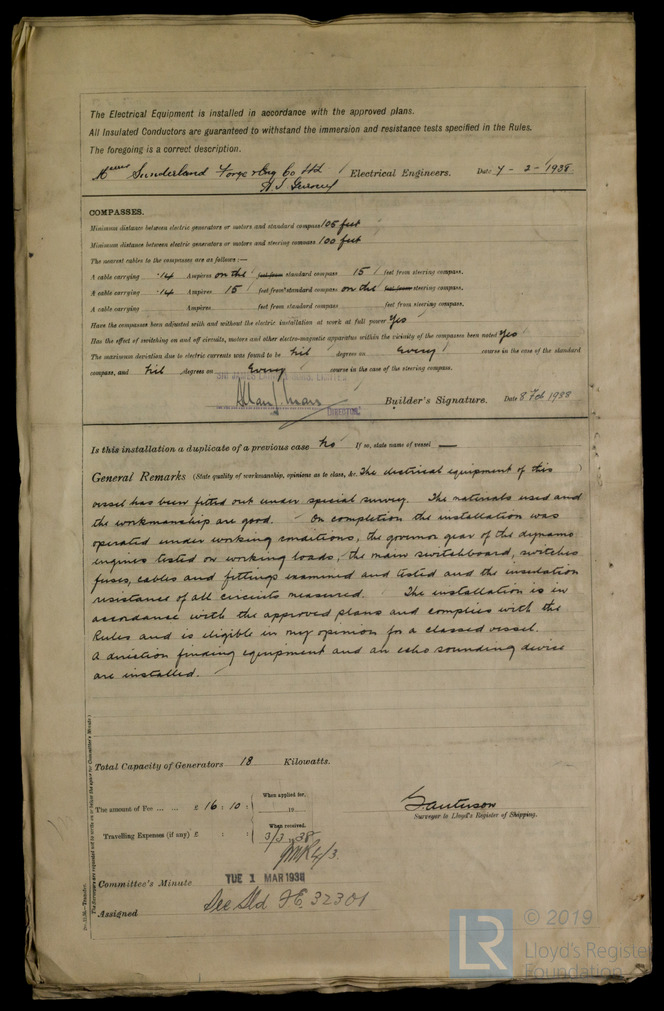 The Electrical Equipment is installed in accordance with the approved plans.
All Insulated Conductors are guaranteed to withstand the immersion and resistance tests specified in the Rules.
The foregoing is a correct description.
Sunderland Forge & Eng Co Ltd Electrical Engineers. Date 7 - 2 - 1938
COMPASSES.
Minimum distance between electric generators or motors and standard compass 105 feet
Minimum distance between electric generators or motors and steering compass 100 feet
The nearest cables to the compasses are as follows:—
A cable carrying .14 Ampères on the feet from standard compass 15 feet from steering compass.
A cable carrying .14 Ampères 15 feet from standard compass on the feet from steering compass.
A cable carrying Ampères feet from standard compass feet from steering compass.
Have the compasses been adjusted with and without the electric installation at work at full power Yes
Has the effect of switching on and off circuits, motors and other electro-magnetic apparatus within the vicinity of the compasses been noted Yes
The maximum deviation due to electric currents was found to be Nil degrees on Every course in the case of the standard
compass, and Nil degrees on Every course in the case of the steering compass.
LIMITED
DIRECTOR.
Builder's Signature. Date 8 Feb 1938
Is this installation a duplicate of a previous case No If so, state name of vessel —
General Remarks (State quality of workmanship, opinions as to class, &c. The electrical equipment of this )
vessel has been fitted out under special survey. The materials used and
the workmanship are good. On completion the installation was
operated under working conditions, the governor gear of the dynamo
engines tested on working loads, the main switchboard, switches
fuses, cables and fittings examined and tested and the insulation
resistance of all circuits measured. The installation is in
accordance with the approved plans and complies with the
Rules and is eligible in my opinion for a classed vessel.
A direction finding equipment and an echo sounding device
are installed.
Total Capacity of Generators 18 Kilowatts.
The amount of Fee ... ... £ 16 : 10 : When applied for,
19
Surveyor to Lloyd's Register of Shipping.
Travelling Expenses (if any) £ : : When received,
3/3 1938
4/3.
Committee's Minute TUE 1 MAR 1938
Assigned See Sld F.E. 32301
© 2019
LR
Lloyd's Register
Foundation